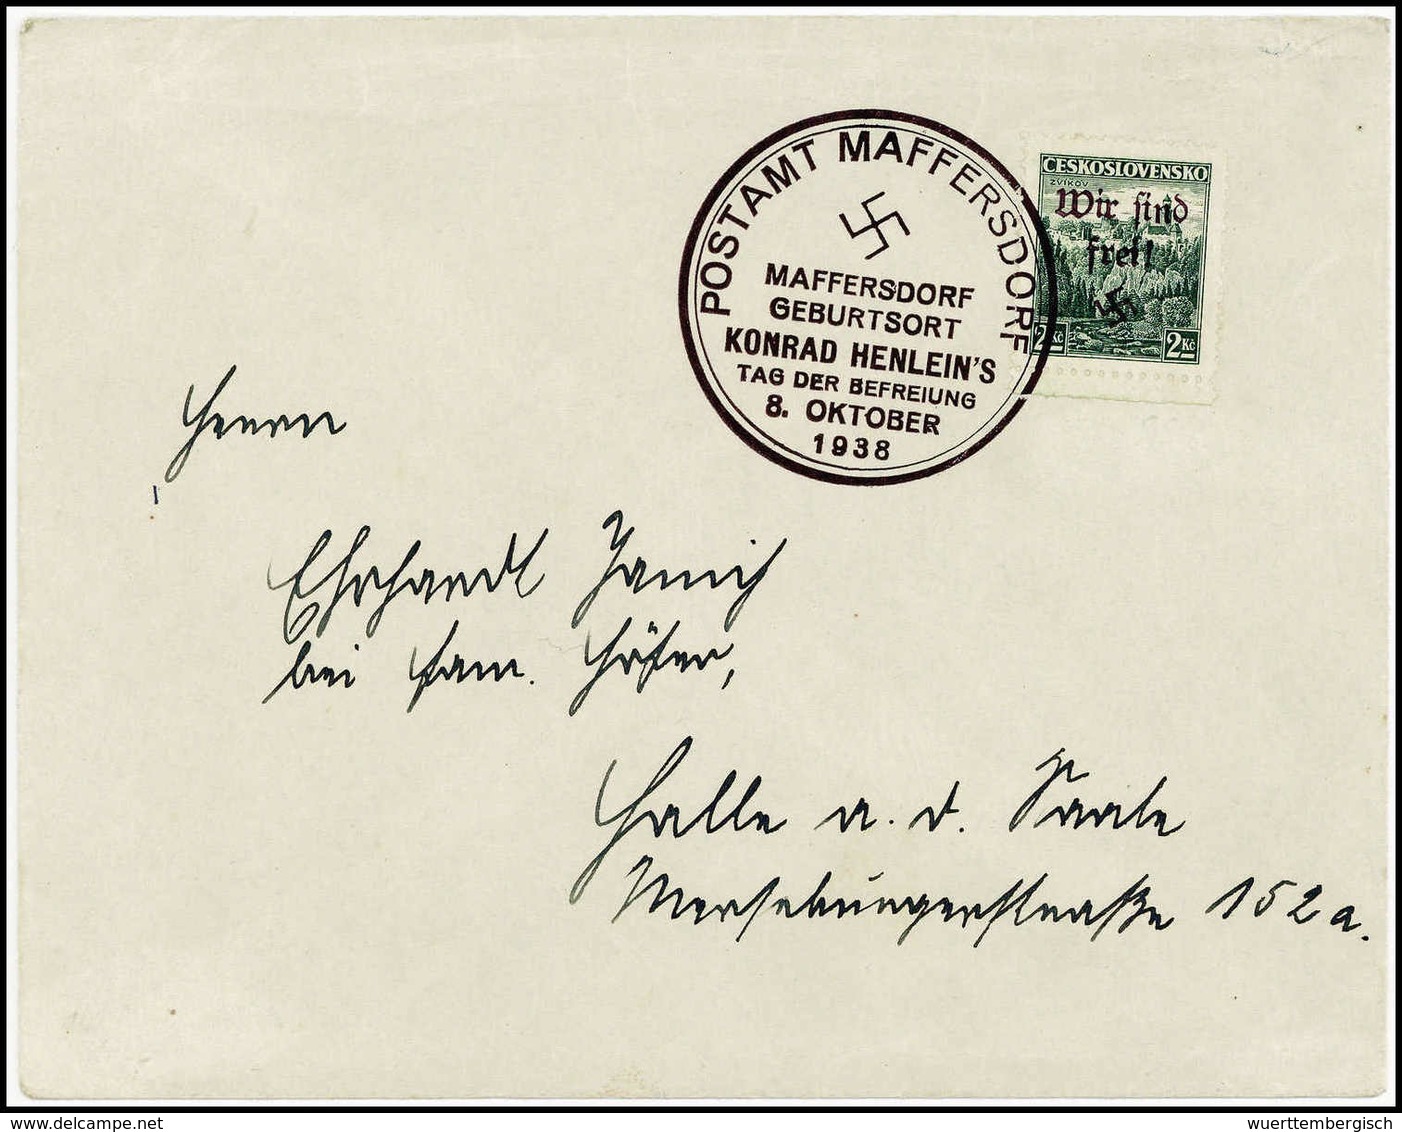 POSTAMT MAFFERSDORF
MAFFERSDORF
GEBURTSORT
KONRAD HENLEIN'S
TAG DER BEFREIUNG
8. OKTOBER
1938
ČESKOSLOVENSKO
ZVÍKOV
Wir sind
frei!
2Kč 2Kč
Herrn
Ehrhardt Janich
bei Fam. Höfer,
Halle a. d. Saale
Merseburgerstraße 152a.
delcampe.net
wuerttembergisch